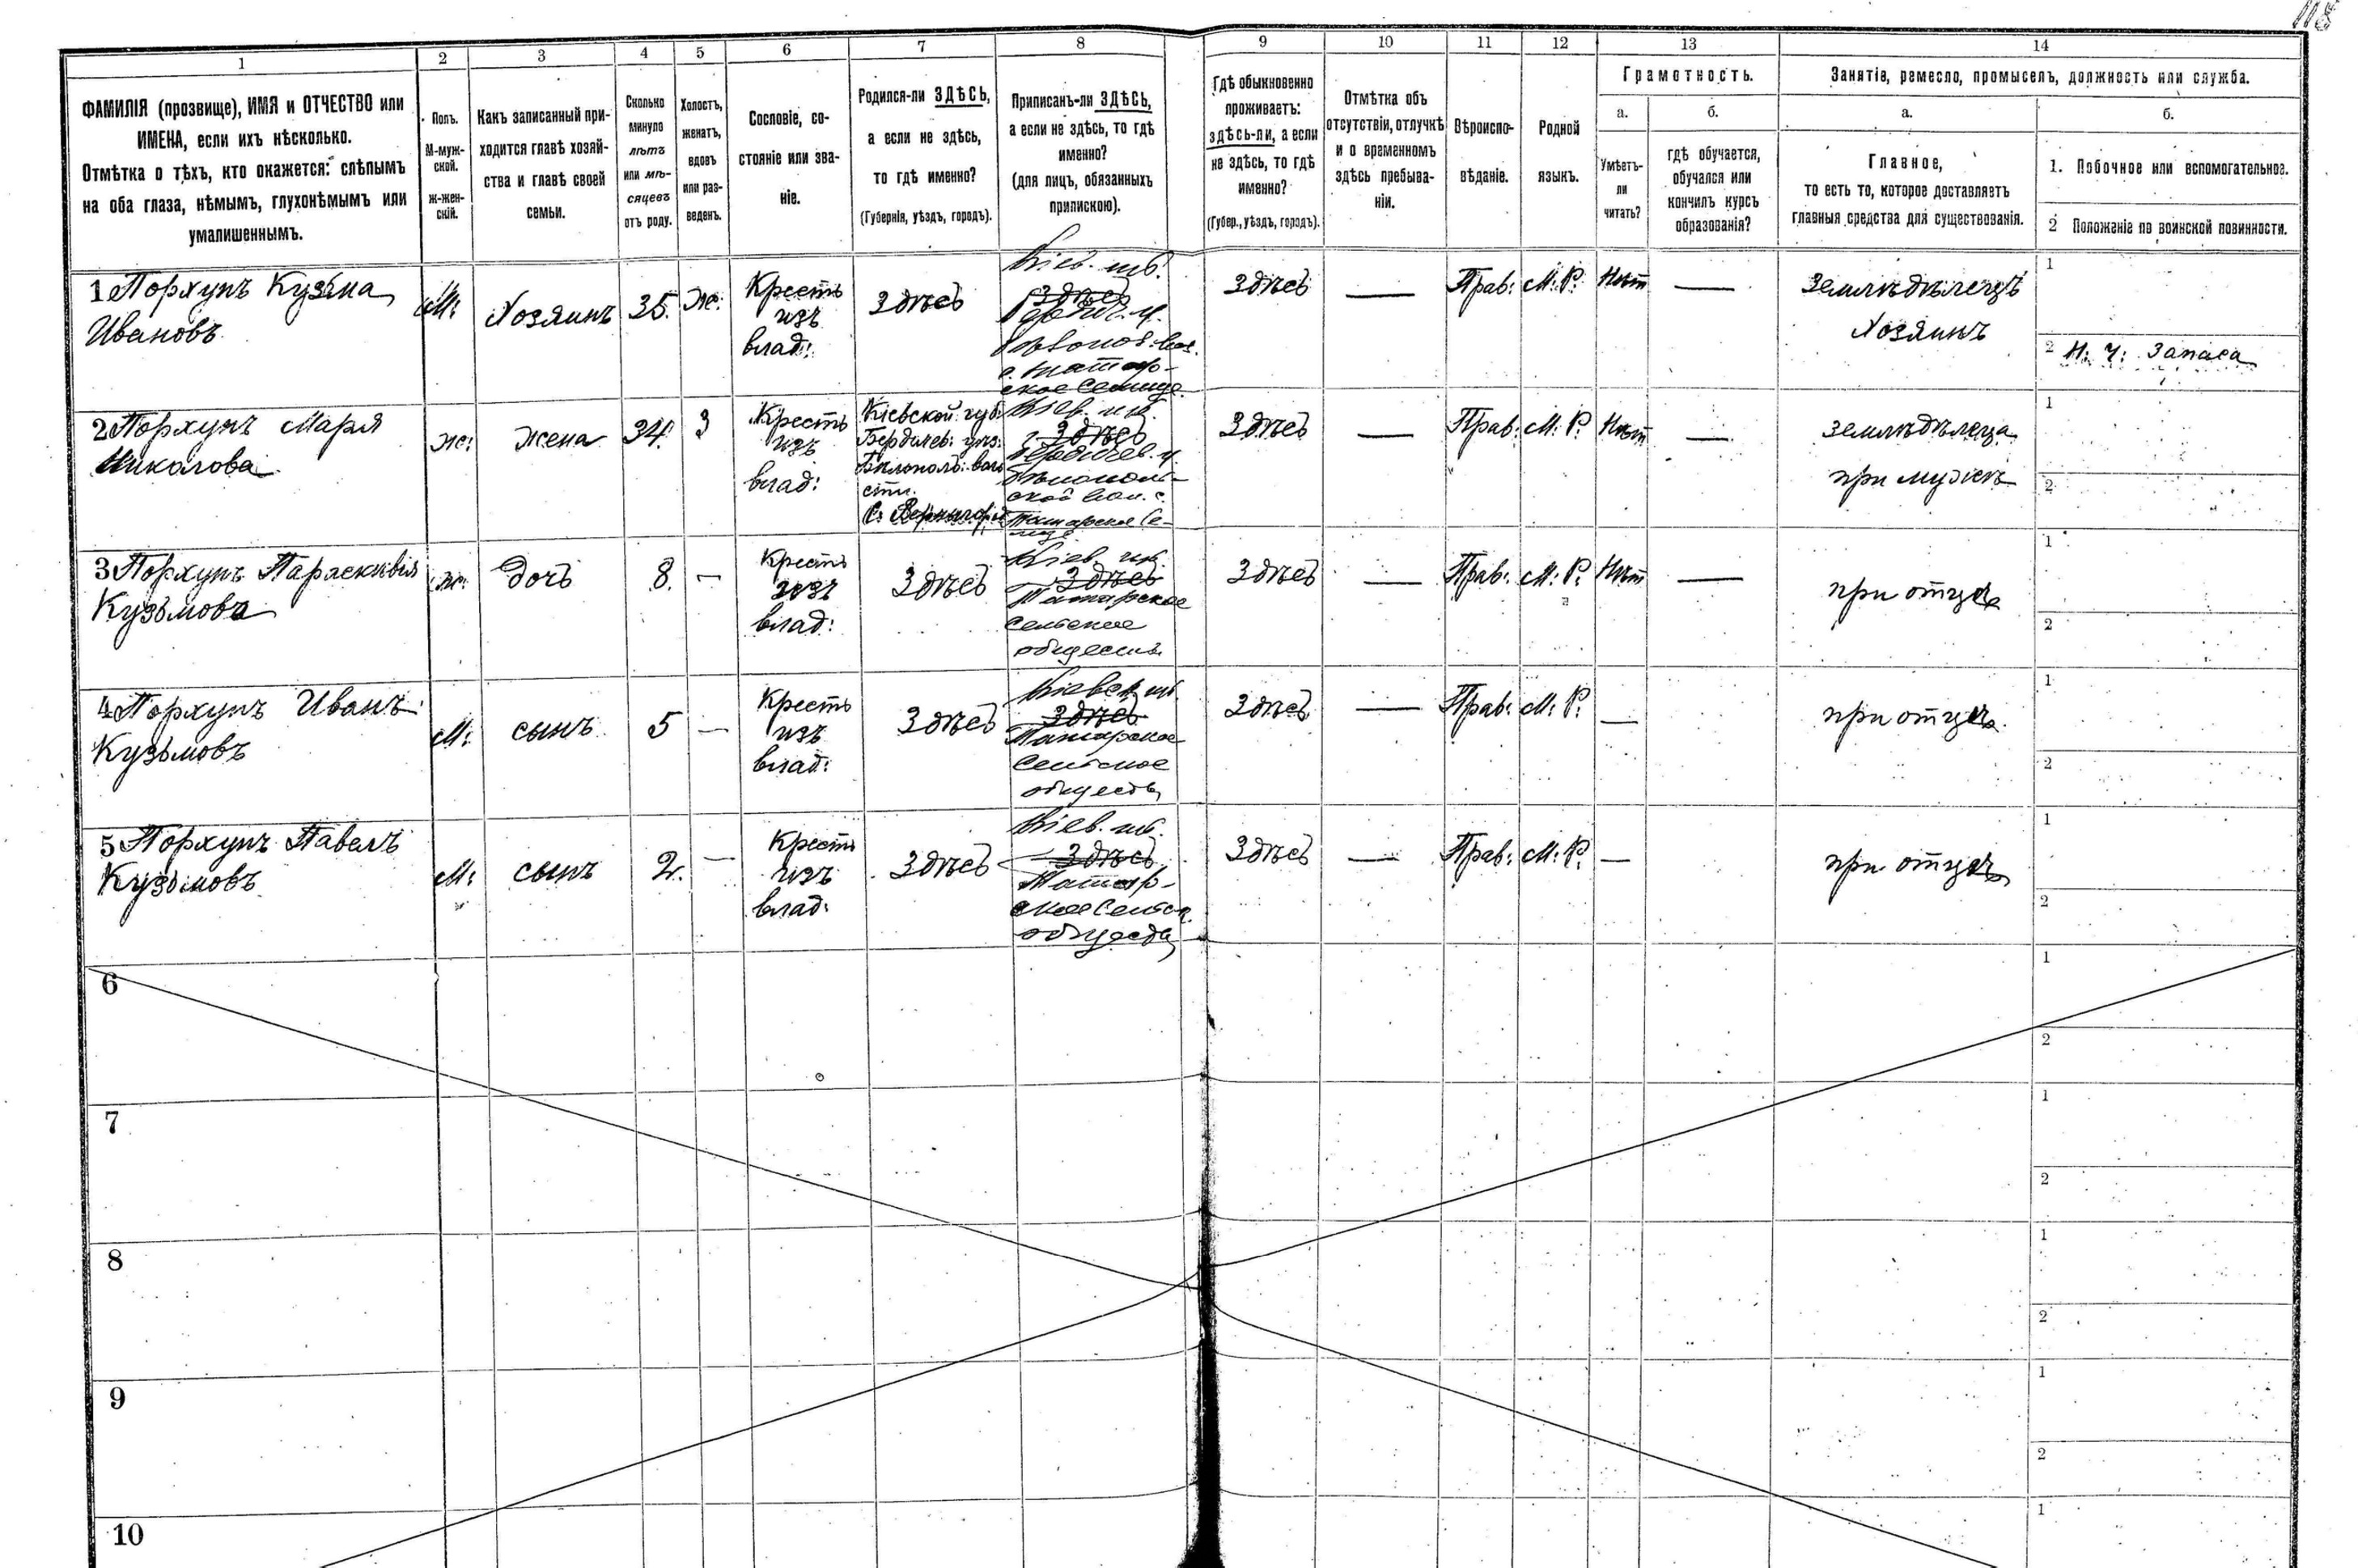 118
1
2
3
4
5
6
7
8
9
10
11
12
13
14
ФАМИЛІЯ (прозвище), ИМЯ и ОТЧЕСТВО или
ИМЕНА, если ихъ нѣсколько.
Отмѣтка о тѣхъ, кто окажется: слѣпымъ
на оба глаза, нѣмымъ, глухонѣмымъ или
умалишеннымъ.
Полъ.
М-муж-
ской.
Ж-жен-
скій.
Какъ записанный при-
ходится главѣ хозяй-
ства и главѣ своей
семьи.
Сколько
минуло
лѣтъ
или мѣ-
сяцевъ
отъ роду.
Холостъ,
женатъ,
вдовъ
или раз-
веденъ.
Сословіе, со-
стояніе или зва-
ніе.
Родился-ли ЗДѢСЬ,
а если не здѣсь,
то гдѣ именно?
(Губернія, уѣздъ, городъ).
Приписанъ-ли ЗДѢСЬ,
а если не здѣсь, то гдѣ
именно?
(для лицъ, обязанныхъ
припискою).
Гдѣ обыкновенно
проживаетъ:
здѣсь-ли, а если
не здѣсь, то гдѣ
именно?
(Губер., уѣздъ, городъ).
Отмѣтка объ
отсутствіи, отлучкѣ
и о временномъ
здѣсь пребыва-
ніи.
Вѣроиспо-
вѣданіе.
Родной
языкъ.
Грамотность.
а.
Умѣетъ-
ли
читать?
б.
гдѣ обучается,
обучался или
кончилъ курсъ
образованія?
Занятіе, ремесло, промыселъ, должность или служба.
а.
Главное,
то есть то, которое доставляетъ
главныя средства для существованія.
б.
1. Побочное или вспомогательное.
2 Положеніе по воинской повинности.
1 Порхунъ Кузьма
Ивановъ
М:
Хозяинъ
35.
Же:
Крестъ
изъ
влад:
Здѣсь
Кіев. губ.
Здѣсь
Бердич. у.
с. Татар-
ское
Здѣсь
—
Прав:
М: Р:
Нѣт
—
Землѣдѣлецъ
Хозяинъ
1
2 Н: Ч: Запаса
2 Порхунъ Марія
Николова
же:
жена
34.
З
Крестъ
изъ
влад:
Кіевской губ:
Бердичев: уѣз:
Бѣлополь: воло
сти.
Кіев. губ.
Здѣсь
Бердичев. у.
Бѣлополь-
ской вол. с.
Татарское Се-
лище
Здѣсь
—
Прав:
М: Р:
Нѣт
—
Землѣдѣлеца
при мужѣ
1
2
3 Порхунъ Параскивія
Кузьмова
же:
дочь
8.
—
Крестъ
изъ
влад:
Здѣсь
Кіев. губ.
Здѣсь
Татарское
Сельское
обществ
Здѣсь
—
Прав:
М: Р:
Нѣт
—
при отцѣ
1
2
4 Порхунъ Иванъ
Кузьмовъ
М:
сынъ
5
—
Крестъ
изъ
влад:
Здѣсь
Кіевск. губ.
Здѣсь
Татарское
Сельское
обществ
Здѣсь
—
Прав:
М: Р:
—
при отцѣ
1
2
5 Порхунъ Павелъ
Кузьмовъ
М:
сынъ
2.
—
Крестъ
изъ
влад:
Здѣсь
Кіев. губ.
Здѣсь
Татар-
ское Сельск.
обществ
Здѣсь
—
Прав:
М: Р:
—
при отцѣ
1
2
6
1
2
7
1
2
8
1
2
9
1
2
10
1